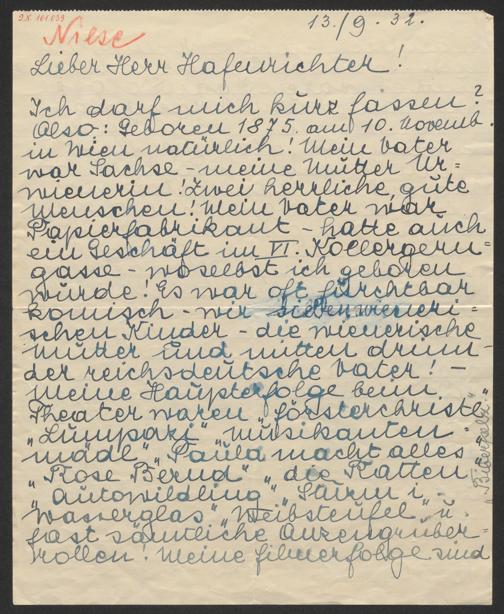 J.N. 101.059
Niese
13./9. 32.
Lieber Herr Hafenrichter!
Ich darf mich kurz fassen?
Also: Geboren 1875. am 10. Novemb.
in Wien natürlich! Mein Vater
war Sachse - meine Mutter Ur=
wienerin! Zwei herrliche, gute
Menschen! Mein Vater war
Papierfabrikant - hatte auch
ein Geschäft im VI. Kollergern=
gasse - woselbst ich geboren
wurde! Es war oft furchtbar
komisch - wir sieben wieneri=
schen Kinder - die wienerische
Mutter und mitten drinn
der reichsdeutsche Vater! -
Meine Haupterfolge beim
Theater waren „Försterchristl"
„Lumpazi" „Musikanten=
mädl" „Paula macht alles"
„Rose Bernd" „die Ratten"
„Autowildling" „Sturm i.
Wasserglas" „Weibsteufel" u.
fast sämtliche Anzengruber=
rollen! Meine Filmerfolge sind